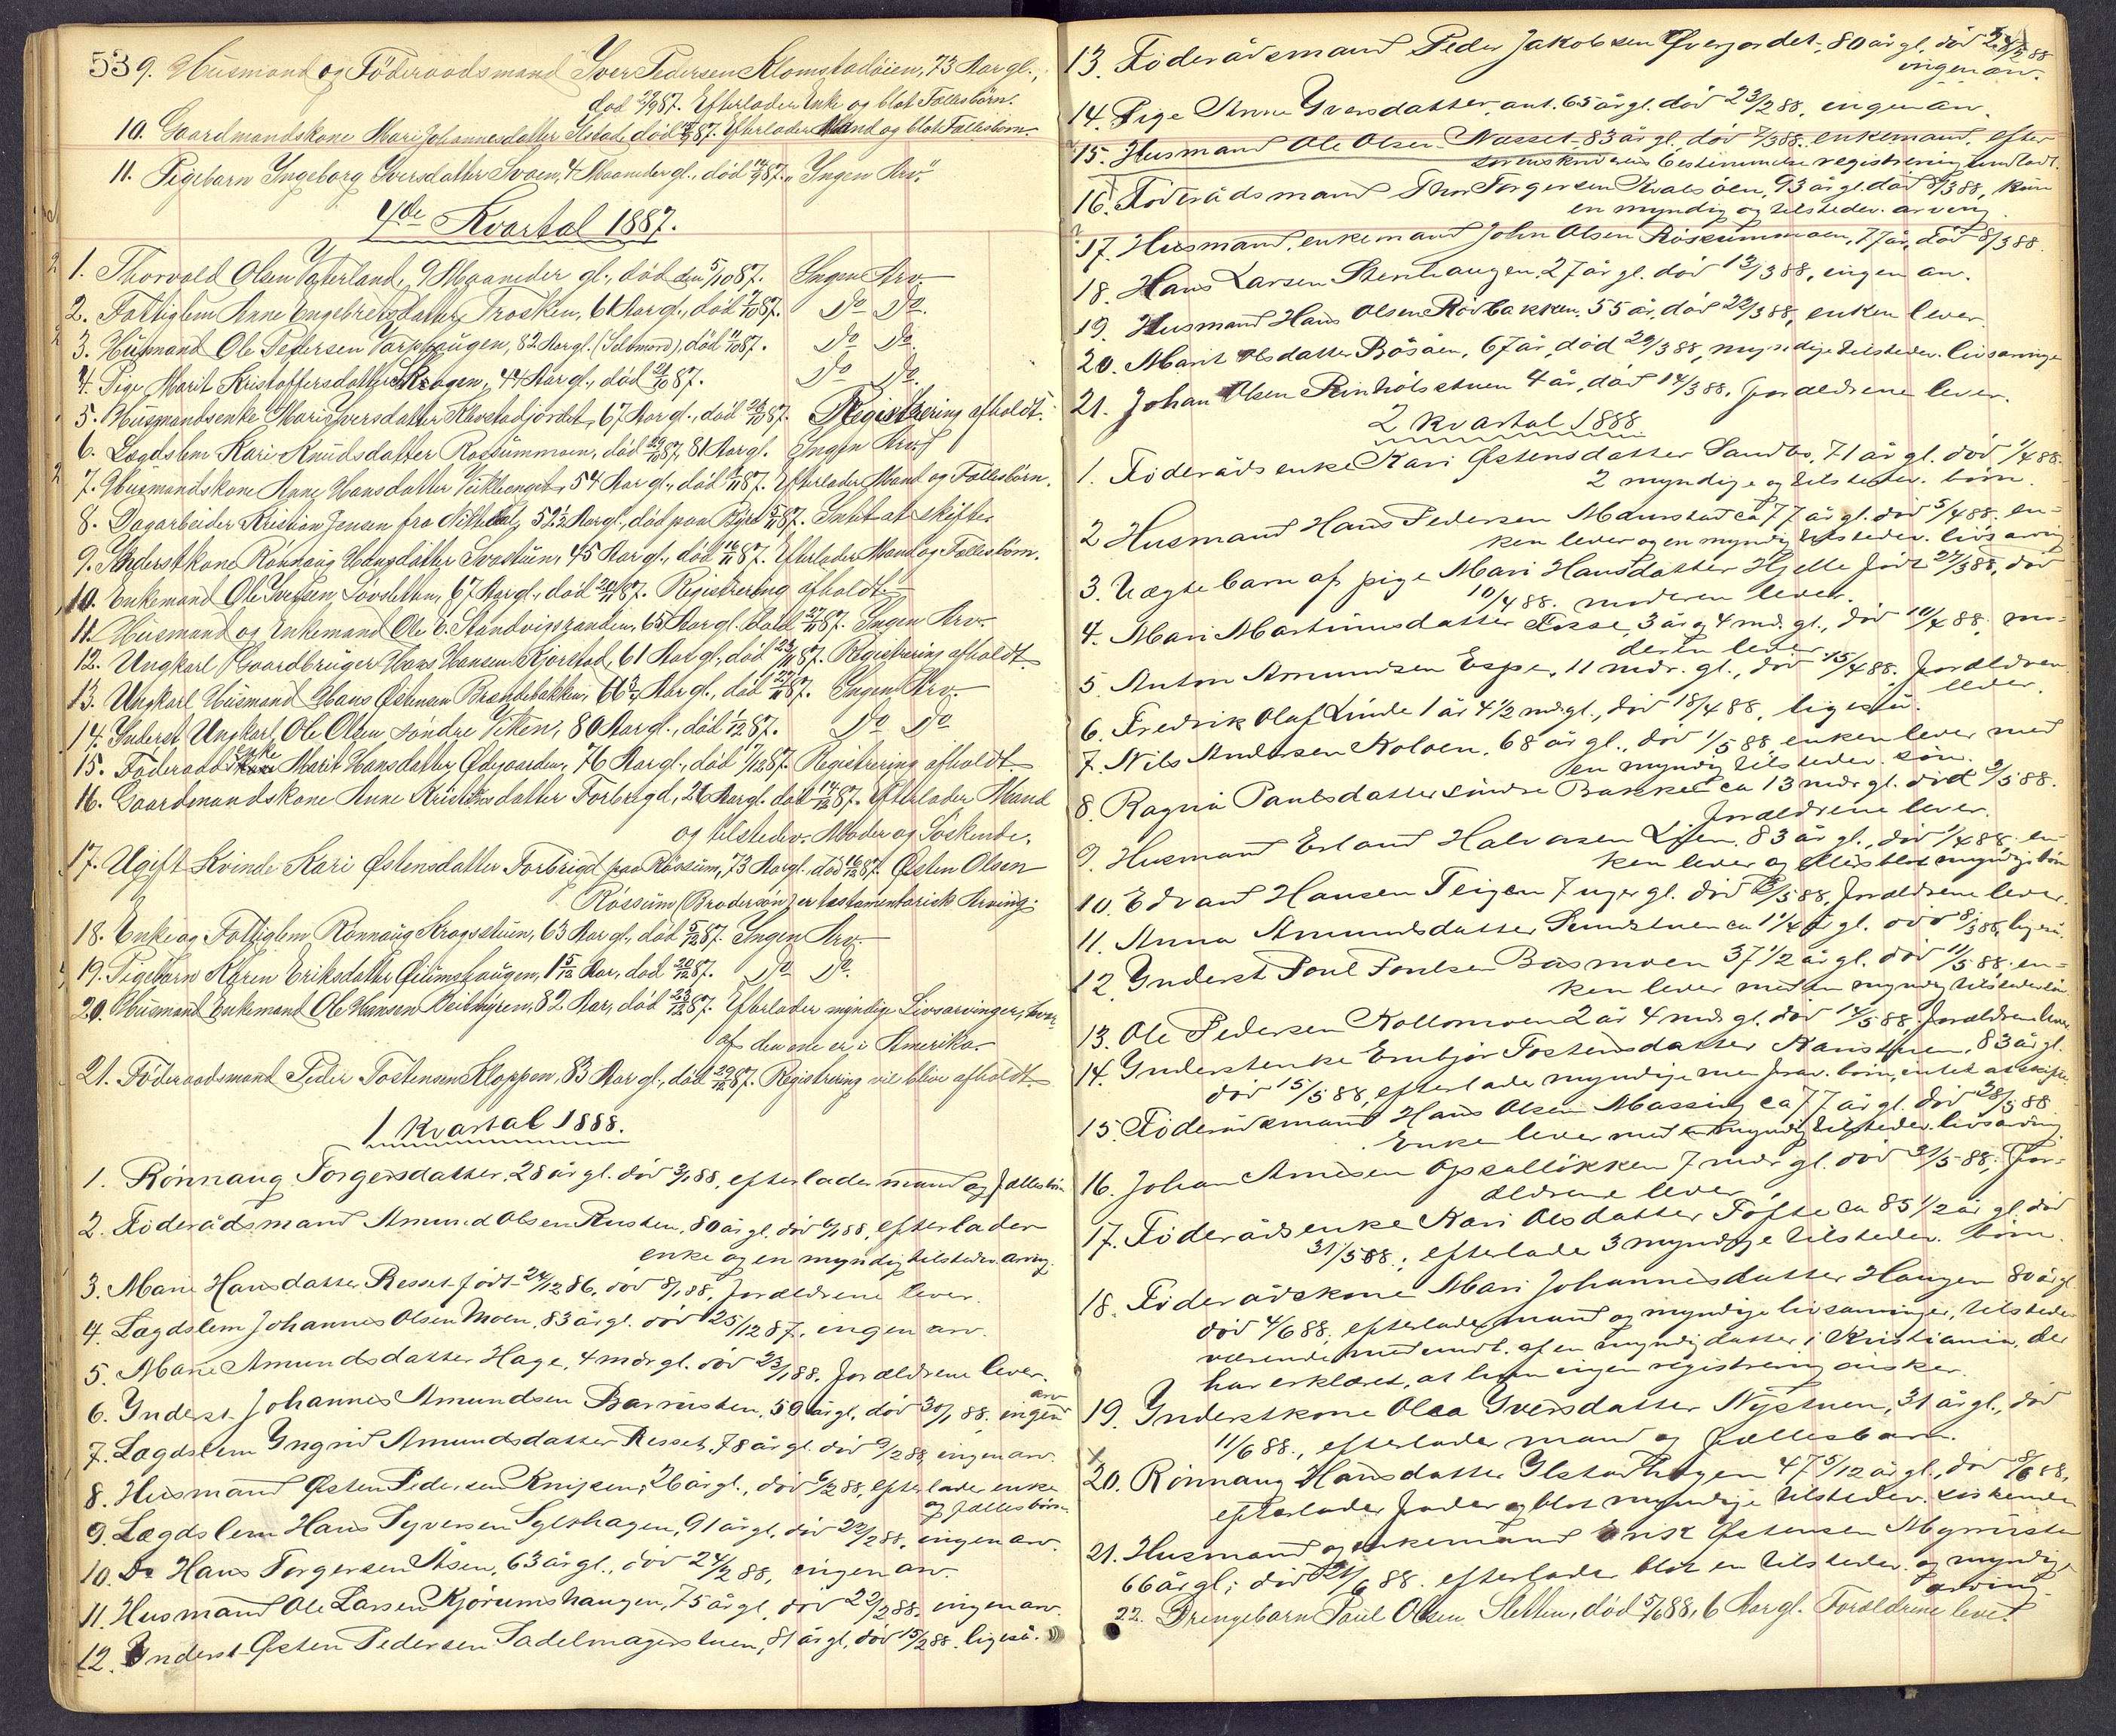 53
9. Husmand og Föderaadsmand Iver Pedersen Klomstadöien, 73 Aar gl.,
död 2/9 87. Efterlader Enke og blot Fællesbörn.
10. Gaardmandskone Mari Johannesdatter död 87. Efterlader Mand og blot Fællesbörn.
11. Pigebarn Ingeborg Iversdatter Svoen, 4 Maaneder gl., död 87. "Ingen Arv."
4de Kvartal 1887.
1. Thorvald Olsen Vaterland, 9 Maaneder gl., död den 5/10 87. Ingen Arv.
2. Fattiglem Anne Engebretsdatter Trosken, 61 Aar gl., död 87. Do Do.
3. Husmand Ole Pedersen Varphaugen, 82 Aar gl. (Selvmord), död 11/10 87. Do Do.
4. Pige Marit Kristoffersdatter Skogen, 44 Aar gl., död 21/10 87. Do Do.
5. Husmandsenke Mari Iversdatter 67 Aar gl., död 24/10 87. Registrering afholdt.
6. Lægdslem Kari Knudsdatter Rossummoen, död 29/10 87, 81 Aar gl. Ingen Arv.
7. Husmandskone Anne Hansdatter 54 Aar gl., död 87. Efterlader Mand og Fællesbörn.
8. Dagarbeider Kristian Jensen fra Nittedal, 52½ Aar gl., död paa 87. Intet at skifte.
9. Inderstkone Rönnaug Hansdatter Svastuen, 45 Aar gl., död 16/11 87. Efterlader Mand og Fællesbörn.
10. Enkemand Ole Iversen 67 Aar gl., död 20/11 87. Registrering afholdt.
11. Husmand og Enkemand Ole E. 65 Aar gl. död 27/11 87. Ingen Arv.
12. Ungkarl Gaardbruger Hans Hansen Kjorstad, 61 Aar gl., död 23/11 87. Registrering afholdt
13. Ungkarl Husmand Hans Østensen Brandebakken, Aar gl., död 27/11 87. Ingen Arv.
14. Inderst Ungkarl Ole Olsen söndre Viken, 80 Aar gl., död 1/12 87. Do Do
15. Föderaadsenke Marit Hansdatter Ødegaarden, 76 Aar gl., död 1/12 87. Registrering afholdt
16. Gaardmandskone Anne Kristiansdatter Forbregd, Aar gl. död 14/12 87. Efterlader Mand
og tilstedev. Moder og Söskende.
17. Ugift Kvinde Kari Østensdatter Forbrigd paa Rössum, 73 Aar gl. död 16/12 87. Østen Olsen
Rössum (Brodersön) er testamentarisk Arving.
18. Enke og Fattiglem Rönnaug Krogsstuen, 63 Aar gl., död 5/12 87. Ingen Arv.
19. Pigebarn Karen Eriksdatter 1 5/12 Aar, död 20/12 87. Do Do.
20. Husmand Enkemand Ole Hansen 82 Aar, död 23/12 87. Efterlader myndige Livsarvinger, hvor
af den ene er i Amerika.
21. Föderaadsmand Peder Tostensen Kloppen, 83 Aar gl., död 29/12 87. Registrering vil blive afholdt
1 Kvartal 1888.
1. Rönnaug Torgersdatter, 28 år gl. död 3/1 88, efterlader mand og fællesbörn
2. Föderådsmand Amund Olsen Rusten, 80 år gl. död 6/1 88, efterlader
enke og en myndig tilstedev. arving.
3. Marie Hansdatter Resset födt 24/12 86, död 8/1 88, forældrene lever.
4. Lægdslem Johannes Olsen Moen, 83 år gl. död 25/12 87, ingen arv.
5. Marie Amundsdatter Hage, 4 mdr gl. död 23/1 88. forældrene lever.
6. Inderst Johannes Amundsen Barrusten, 50 år gl. död 30/1 88. ingen arv
7. Lægdslem Ingrid Amundsdatter Resset, 78 år gl. död 9/2 88, ingen arv.
8. Husmand Østen Pedersen 26 år gl., död 6/2 88, efterlader enke
og fællesbörn.
9. Lægdslem Hans Syversen Sylthagen, 91 år gl. död 22/2 88, ingen arv.
10. Do Hans Torgersen Åsen, 63 år gl., död 24/2 88, ingen arv.
11. Husmand Ole Larsen Kjörumshaugen, 75 år gl. död 22/2 88, ingen arv.
12. Inderst Østen Pedersen Sadelmagerstuen, 81 år gl. död 15/2 88. ligeså.
13. Föderådsmand Peder Jakobsen Øverjordet, 80 år gl. död 24/2 88
ingen arv.
14. Pige Anne Iversdatter, ant. 65 år gl. död 23/2 88, ingen arv.
15. Husmand Ole Olsen Nusset, 83 år gl. död 2/3 88. enkemand, efter
sorenskriverens bestemmelse registrering undladt.
16. Föderådsmand Thor Torgersen Kvalsöen, 93 år gl. död 8/3 88, kun
en myndig og tilstedev. arving.
17. Husmand, enkemand John Olsen Rössummoen, 77 år, död 8/3 88.
18. Hans Larsen Stenhaugen, 27 år gl. död 13/3 88, ingen arv.
19. Husmand Hans Olsen Rödbakken, 55 år, död 22/3 88, enken lever.
20. Marit Olsdatter Båsåen, 67 år, död 29/3 88, myndige tilstedev. livsarvinger
21. Johan Olsen 4 år, död 14/3 88, forældrene lever.
2 kvartal 1888
1. Föderådsenke Kari Østensdatter Sandbo, 71 år gl. död 1/4 88.
2 myndige og tilstedev. börn.
2 Husmand Hans Pedersen Maurstad ca 77 år gl. död 5/4 88, en-
ken lever og en myndig tilstedev. livsarving
3. Uægte barn af pige Mari Hansdatter Hjelle födt 27/3 88, död
10/4 88. moderen lever.
4. Mari Martinusdatter Fosse, 3 år 4 md. gl., död 10/4 88, mo-
deren lever
5. Anton Amundsen Espe, 11 mdr. gl., död 15/4 88. forældren
lever.
6. Fredrik Olaf Linde 1 år 4½ md gl., död 18/4 88, ligeså.
7. Nils Andersen Kolöen, 68 år gl., död 1/5 88, enken lever med
en myndig tilstedev. sön.
8. Ragna Paulsdatter söndre Bakken ca 13 mdr gl. död 2/5 88.
forældrene lever.
9. Husmand Erland Halvorsen Lien, 83 år gl., död 1/4 88, en-
ken lever og ellers blot myndige börn
10. Edvard Hansen Teigen 7 uger gl. död 88, forældrene lever.
11. Anna Amundsdatter ca 1¼ år gl. död 8/3 88, ligeså.
12. Inderst Poul Poulsen Basmoen 37½ år gl. död 11/5 88, en-
ken lever med en myndig tilstedev. sön
13. Ole Pedersen Kollomoen 2 år 4 mdr gl. död 14/5 88, forældrene lever
14. Inderstenke Embjör Tostensdatter Karistuen, 83 år gl.
död 15/5 88, efterlader myndige men fravr. börn, intet at skifte.
15. Föderådsmand Hans Olsen Massing ca 77 år gl. död 28/5 88
Enke lever med en myndig tilstedev. livsarving
16. Johan Arnesen Opsallökken 7 mdr gl. död 21/5 88. For-
ældrene lever.
17. Föderådsenke Kari Olsdatter Tofte ca 85½ år gl. död
31/5 88; efterlader 3 myndige tilstedev. börn.
18. Föderådskone Mari Johannesdatter Haugen 80 år gl
död 4/6 88, efterlader mand og myndige livsarvinger, tilstede-
værende med undt. af en myndig datter i Kristiania, der
har erklæret, at hun ingen registrering önsker.
19. Inderstkone Olea Iversdatter Nystuen, 31 år gl., död
11/6 88., efterlader mand og fællesbarn.
X
20. Rönnaug Hansdatter Ilstadhagen 47 5/12 år gl., död 8/6 88,
efterlader fader og blot myndige tilstedev. söskende
21. Husmand og enkemand Erik Østensen Myrrusten
66 år gl; död 21/6 88. efterlader blot en tilstedev. og myndig
arving.
22. Drengebarn Paul Olsen Sletten, död 5/6 88, 6 Aar gl. Forældrene lever